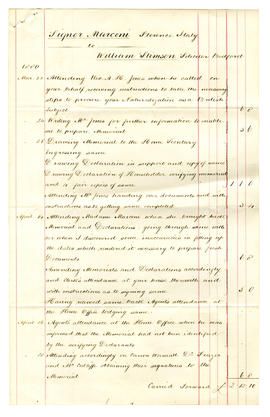 Signor Marconi
to
William Stimson Solicitor Bedford
1880
Mar. 23 Attending Geo. A. H. Jones when he called on
your behalf receiving instructions to take the necessary
steps to procure your Naturalization as a British
Subject 6 8
24 Writing Mr Jones for further information to enable
me to prepare Memorial 3 6
Drawing Memorial to the Home Secretary
Engrossing same
Drawing Declaration in support and copy of same
Drawing Declaration of Householders verifying memorial
and 4 fair copies of same 1 1 0
Attending Mr Jones handing over documents and with
instructions as to getting same completed 3 4
April Attending Madame Marconi when she brought back
Memorial and Declarations going through same with
her when I discovered some inaccuracies in filling up
the dates which rendered it necessary to prepare fresh
Documents 6 8
Amending Memorials and Declarations accordingly
and Clerks attendance at your house therewith and
with instructions as to signing same
Having received same back Agents attendance at
the Home Office lodging same
April Agents attendance at the Home Office when he was
informed that the Memorial had not been identified
by the verifying Declarants
Attending accordingly on Dr
and Mr obtaining their signatures to the
Memorial 6 8
Carried forward £2 10